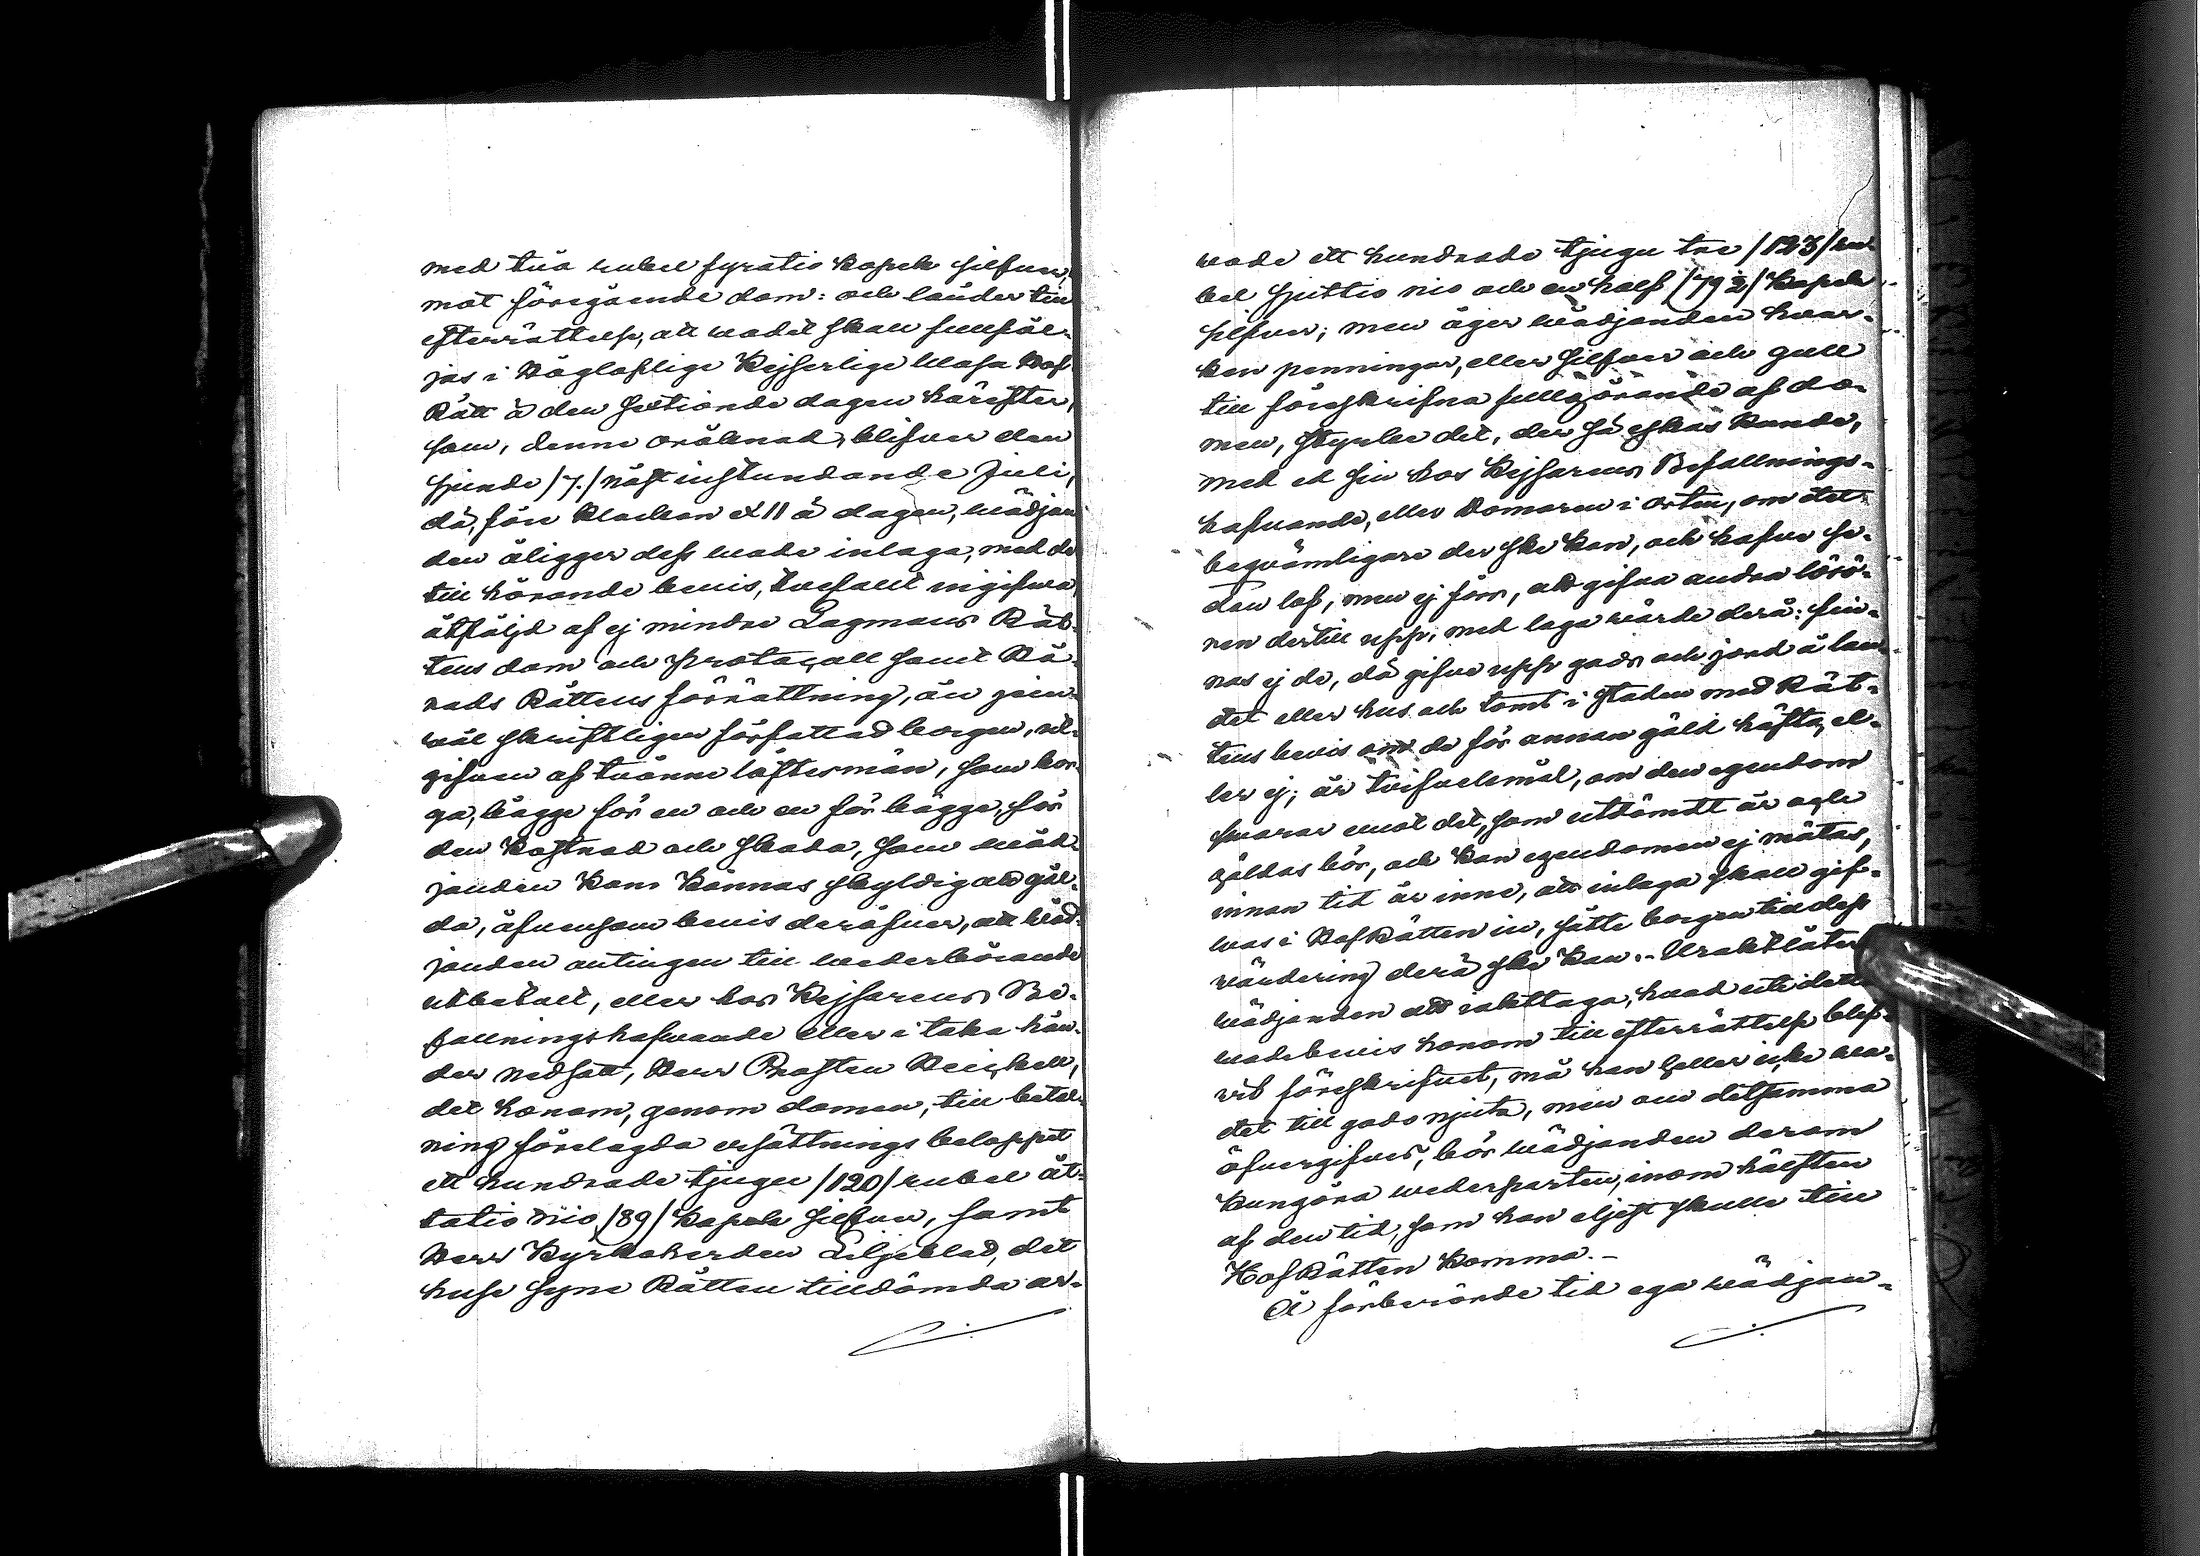 med två rubel fyratio kopek silfver,
mot föregående dom: och länder till
efterrättelse, att wadet skall fullföl-
jas i Höglofliga Kejserliga Wasa Hof
Rätt å den sextionde dagen härefter,
som, denne oräknad, blifver den
sjunde /7./ näst instundande Juli,
då, före klockan XII å dagen, wädjan
den åligger dess wade inlaga, med der
till hörande bevis, tvefallt ingifva
åtföljd af ej mindre Lagmans Rät-
tens dom och protocoll samt Hä-
rads Rättens förrättning, än jem-
wäl skriftligen författad borgen, ut-
gifven af tvänne löftesmän, som bor-
ga, bägge för en och en för bägge, för
den kostnad och skada, som wäd-
janden kan kännas skyldig att gäl-
da, äfvensom bevis deröfver, att wäd-
janden antingen till wederbörande
utbetalt, eller hos Kejsarens Be-
fallningshafvande eller i taka hän-
der nedsatt, Herr Prosten Reichell,
det honom, genom domen, till betal-
ning förelagda ersättnings beloppet
ett hundrade tjugu /120/ rubel åt-
tatio nio /89/ kopek silfver, samt
Herr Kyrkoherden Liljeblad, det
huse syne Rätten tilldömda ar-
vode ett hundrade tjugu tre /123/ ru-
bel sjuttio nio och en half /79½/ kopek
silfver; men äger wädjanden hvar-
ken penningar, eller silfver och gull
till föreskrifna fullgörande af do-
men, styrke det, der så äskas kunde,
med ed sin hos Kejsarens Befallnings-
hafvande, eller Domaren i orten, om det
beqvämligare der ske kan, och hafve se-
dan lof, men ej förr, att gifva andra lösö-
ren dertill upp, med laga wärde derå: fin-
nas ej de, då gifve upp gods och jord å lan-
det eller hus och tomt i staden med Rät-
tens bevis om de för annan gäld häfta, el-
ler ej; är tvifvelsmål, om den egendom
svarar emot det, som utdömdt är och
gäldas bör, och kan egendomen ej mätas,
innan tid är inne, att inlaga skall gif-
was i Hof Rätten in, sätte borgen till dess
wärdering derå ske kan. - Uraktlåter
wädjanden att iakttaga, hvad uti detta
wadebevis honom till efterrättelse blif-
vit föreskrifvet, må han heller icke wa-
det till godo njuta, men om detsamma
öfvergifves, bör wädjanden derom
kungöra wederparten, inom hälften
af den tid, som han eljest skulle till
Hof Rätten komma. -
Å förberörde tid ega wädjan-